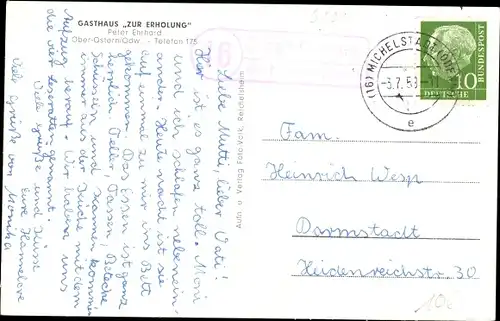 GASTHAUS „ZUR ERHOLUNG"
Peter Ehrhard
Ober-Ostern/Odw. - Telefon 175
Liebe Mutti, lieber Vati!
Hier ist es ganz toll. Moni
und ich schlafen nebenein-
ander. Heute nacht ist sie
auf einmal zu mir ins Bett
gekommen. Das Essen ist ganz
herrlich. Teller, Tassen, Bestecke
Schüsseln und Kannen kommen
immer aus der Küche mit dem
Aufzug herauf. Wir haben uns
die vier genannt.
Viele Grüße und Küsse
Eure Hannelore
Viele Grüße von Monika
Aufn. u. Verlag: Foto-Volk, Reichelsheim
16
(16) MICHELSTADT (ODENW)
-3.7.58.-11
e
DEUTSCHE
BUNDESPOST
10
Fam.
Heinrich Wesp
Darmstadt
Heidenreichstr. 30